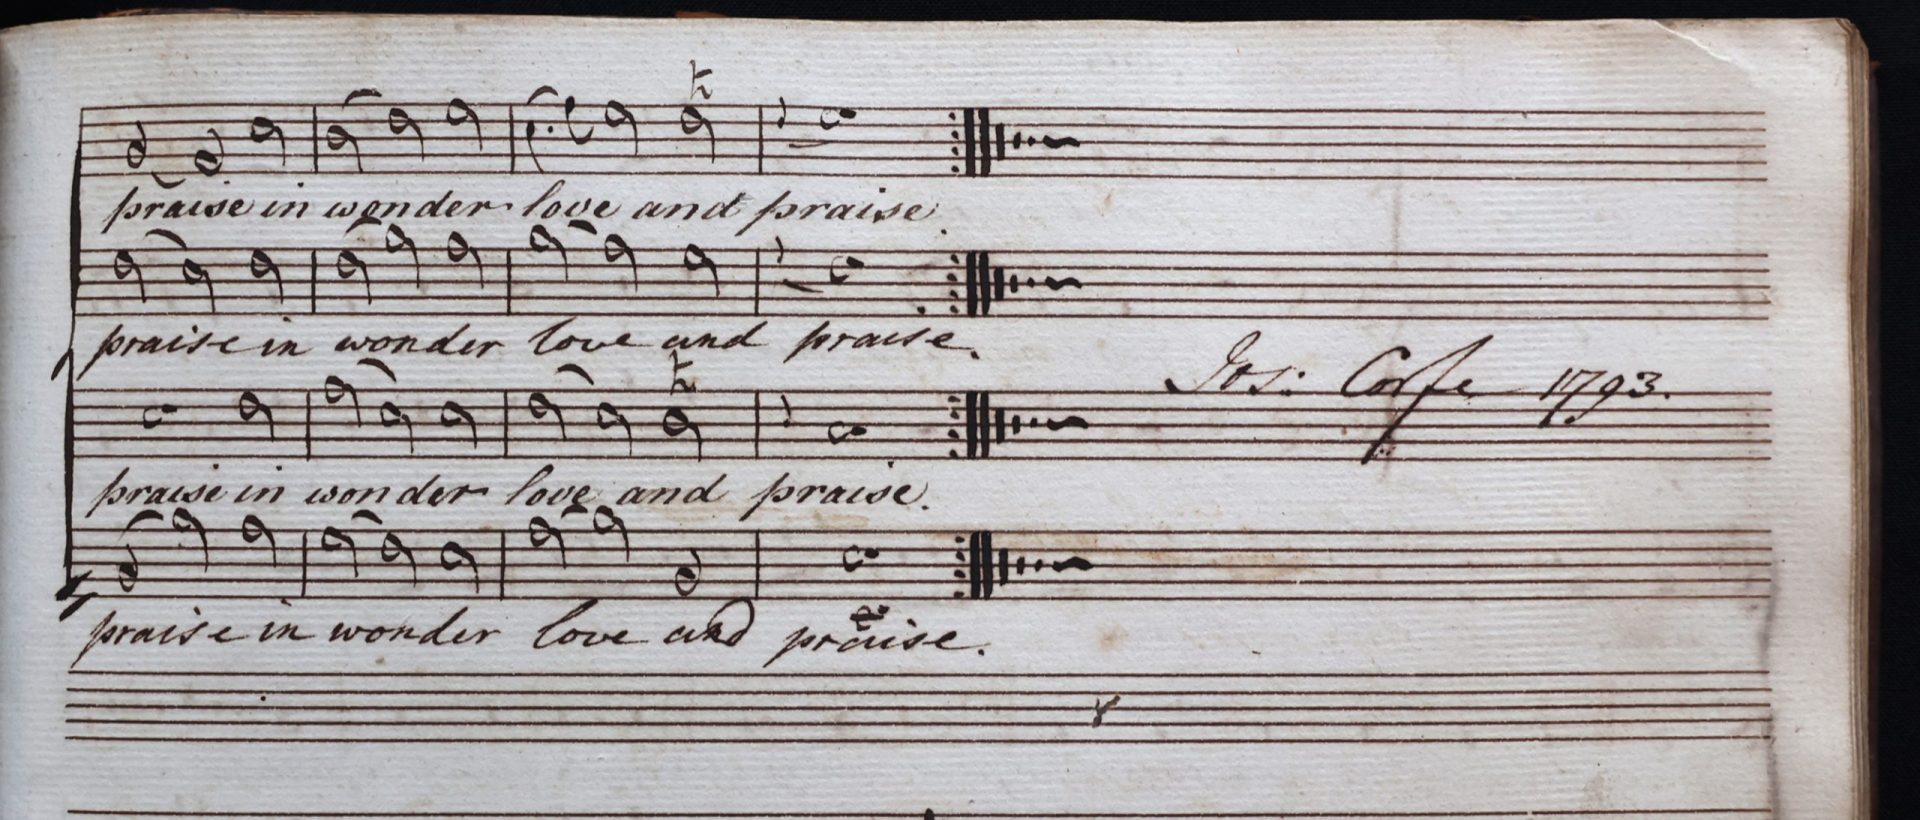 praise in wonder love and praise
praise in wonder love and praise.
Jos: Corfe 1793.
praise in wonder love and praise.
praise in wonder love and praise.